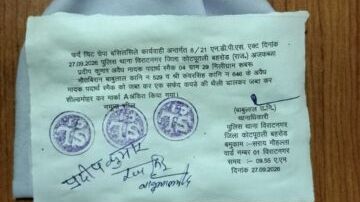 फर्द चिट चेपा बसिलसिले कार्यवाही अन्तर्गत 8/21 एन.डी.पी.एस. एक्ट दिनांक
27.09.2026 पुलिस थाना विराटनगर जिला कोटपूतली बहरोड (राज.) अजकब्जा
प्रदीप कुमार अवैध मादक पदार्थ स्मैक 04 ग्राम 29 मिलीग्राम बरूबरू
मौतबिरान बाबुलाल कानि न 529 व श्री कंवरसिंह कानि न 646 के अवैध
मादक पदार्थ स्मैक को जब्त कर एक सफेद कपडे की थैली डालकर जब्त कर
सील्डमोहर कर मार्का A अंकित किया गया।
नमूना सील
(बाबुलाल
थानाधिकारी
पुलिस थाना विराटनगर
जिला कोटपूतली बहरोड
बमुकाम:- सराय मौहल्ला
वार्ड नम्बर 01 विराटनगर
समय :- 09.55 ए.एम
दिनांक 27.09.2026
प्रदीप कुमार